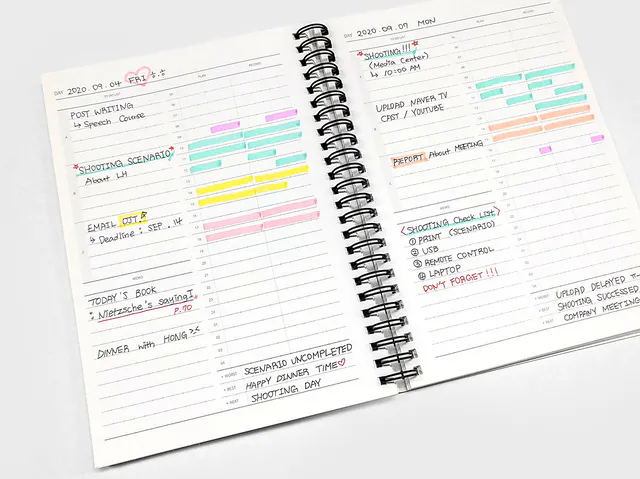 DAY 2020.09.04 FRI
TO DO LIST
PLAN
RECORD
POST WRITING
↳ Speech Course
*SHOOTING SCENARIO*
About LH
EMAIL OJT.
↳ Deadline : SEP. 14
MEMO
TODAY'S BOOK
: Nietzsche's saying I.
P.70
DINNER with HONG ><
• WORST SCENARIO UNCOMPLETED
• BEST HAPPY DINNER TIME♡
• NEXT SHOOTING DAY
DAY 2020.09.07 MON
PLAN
RECORD
*SHOOTING!!!*
(Media Center)
↳ 10:00 AM
UPLOAD NAVER TV
CAST / YOUTUBE
REPORT About MEETING
MEMO
<SHOOTING Check LIST>
① PRINT (SCENARIO)
② USB
③ REMOTE CONTROL
④ LAPTOP
DON'T FORGET!!!
• WORST UPLOAD DELAYED
• BEST SHOOTING SUCCESSED
• NEXT COMPANY MEETING